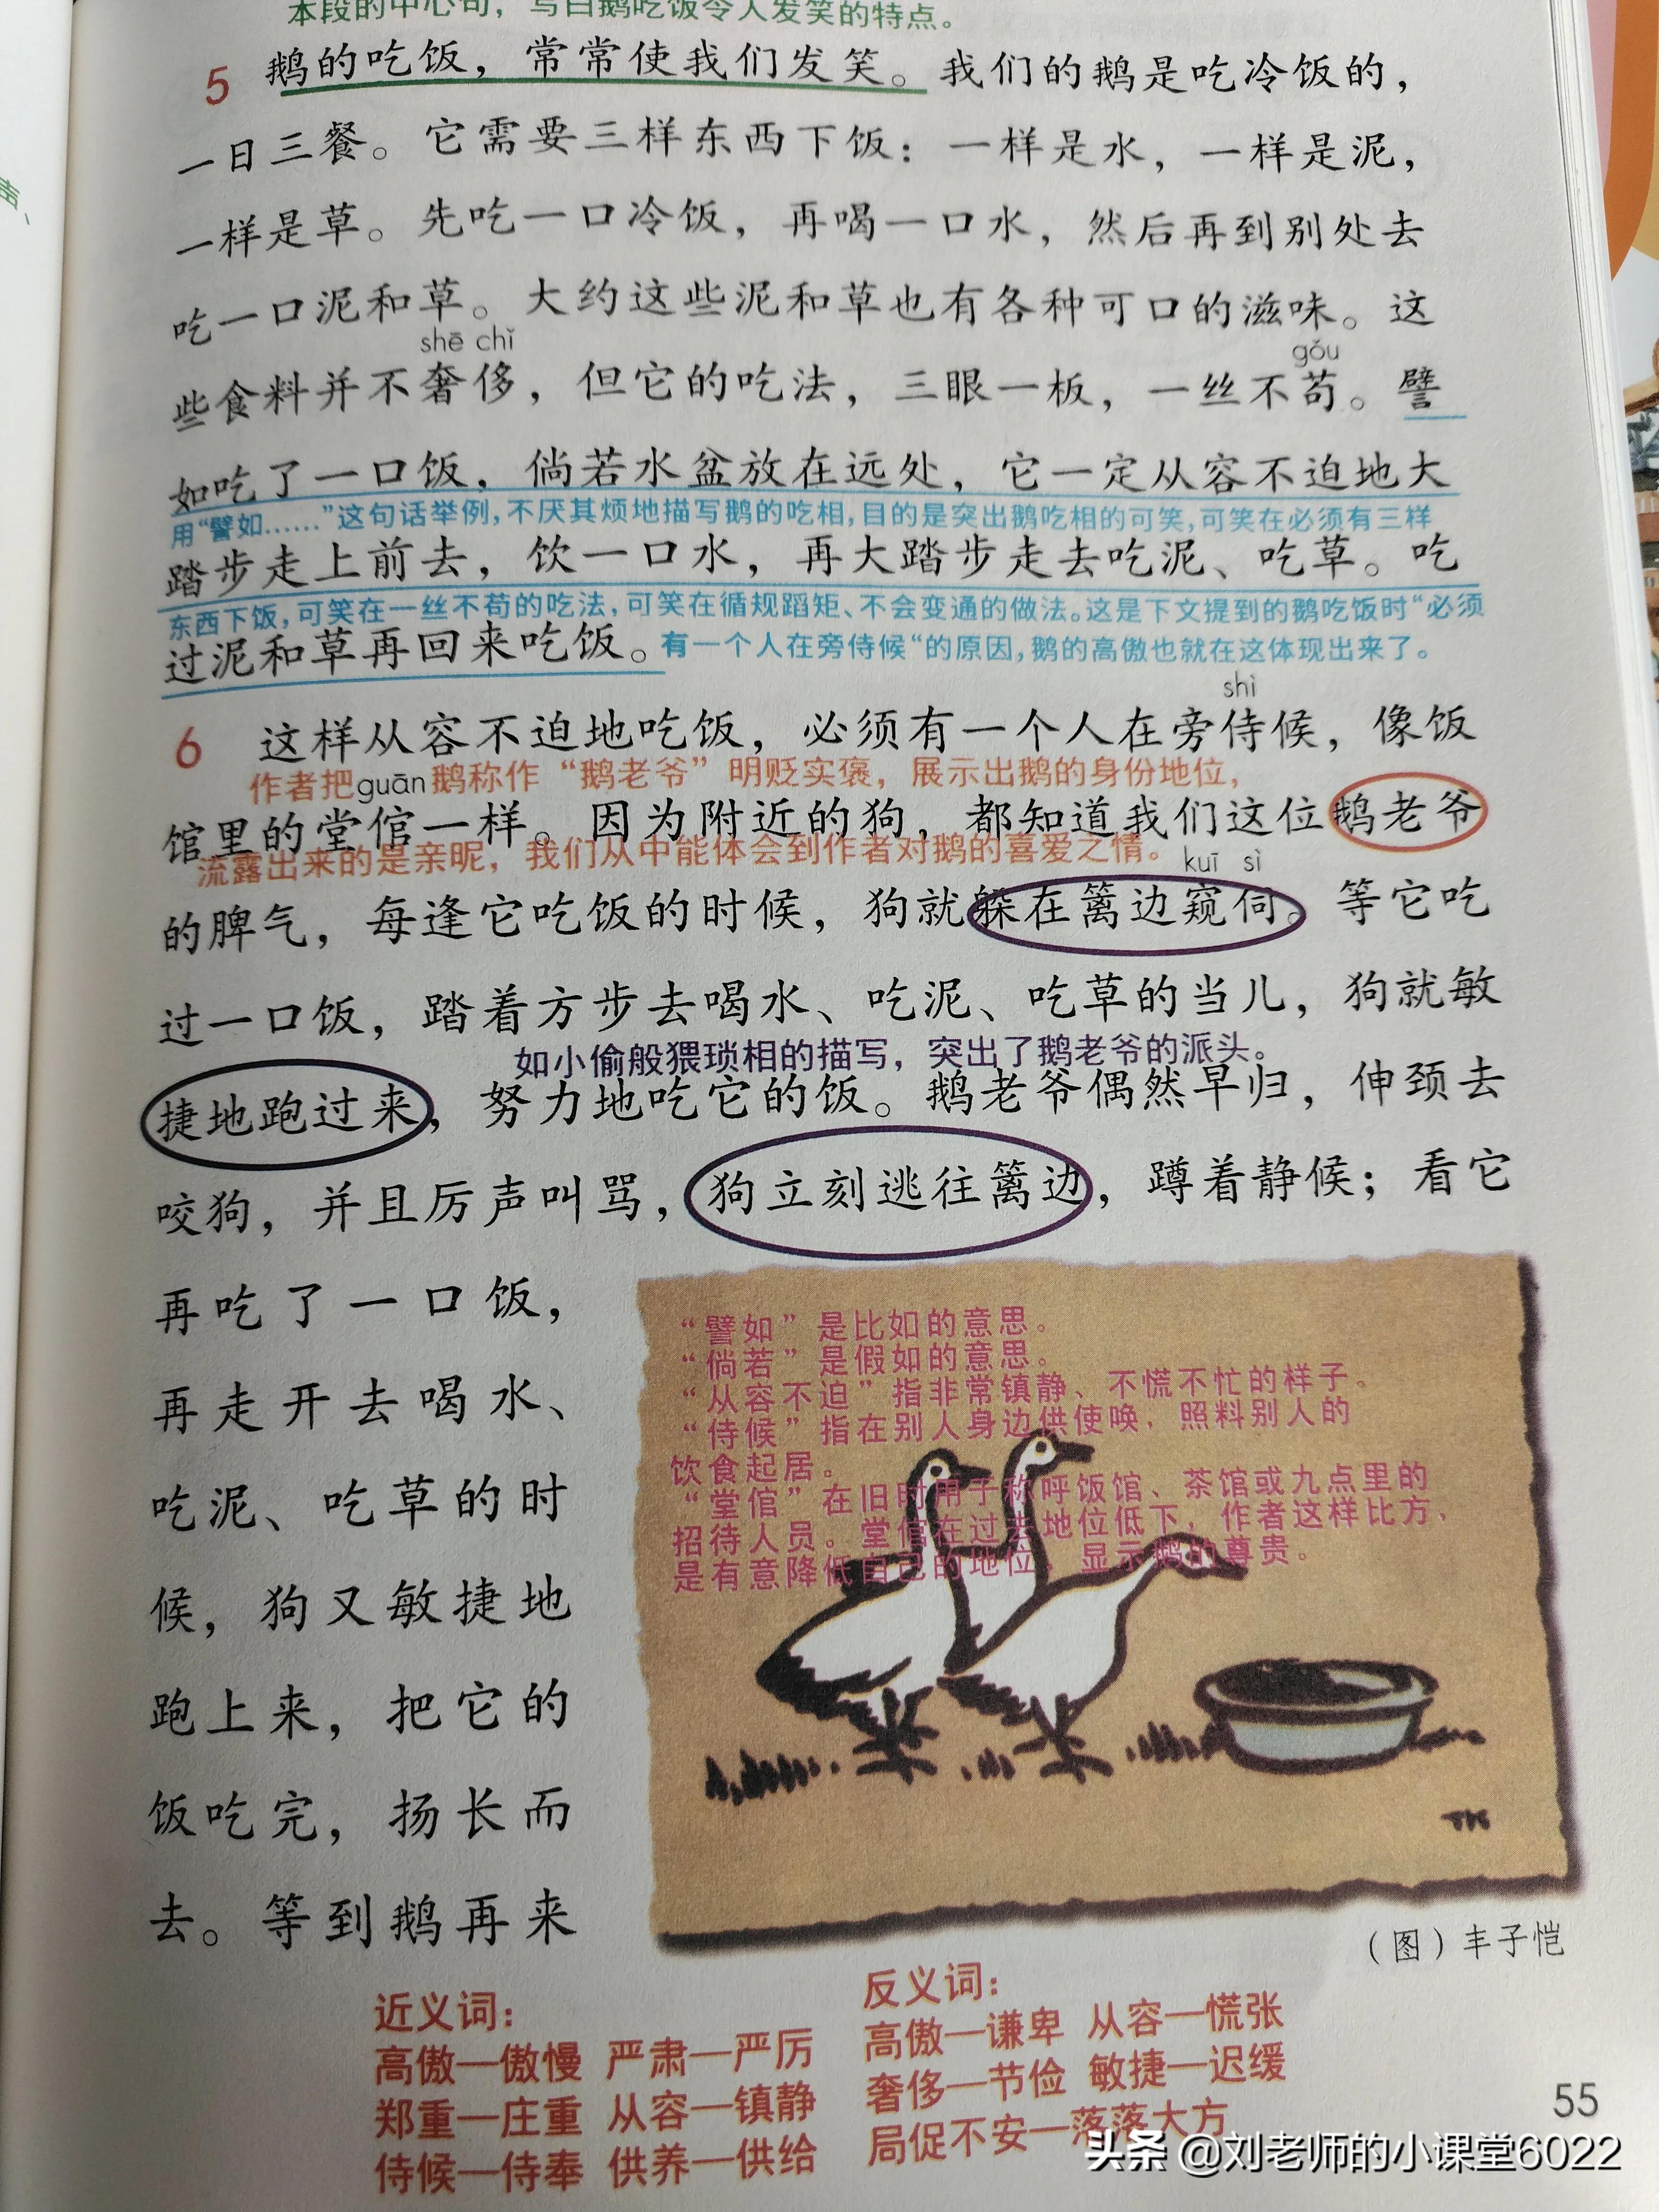 本段的中心句，写白鹅吃饭令人发笑的特点。
5 鹅的吃饭，常常使我们发笑。我们的鹅是吃冷饭的，
一日三餐。它需要三样东西下饭：一样是水，一样是泥，
一样是草。先吃一口冷饭，再喝一口水，然后再到别处去
吃一口泥和草。大约这些泥和草也有各种可口的滋味。这
shē chǐ
gǒu
些食料并不奢侈，但它的吃法，三眼一板，一丝不苟。譬
如吃了一口饭，倘若水盆放在远处，它一定从容不迫地大
用“譬如……”这句话举例，不厌其烦地描写鹅的吃相，目的是突出鹅吃相的可笑，可笑在必须有三样
踏步走上前去，饮一口水，再大踏步走去吃泥、吃草。吃
东西下饭，可笑在一丝不苟的吃法，可笑在循规蹈矩、不会变通的做法。这是下文提到的鹅吃饭时“必须
过泥和草再回来吃饭。
有一个人在旁侍候“的原因，鹅的高傲也就在这体现出来了。
shì
6 这样从容不迫地吃饭，必须有一个人在旁侍候，像饭
作者把鹅称作“鹅老爷”明贬实褒，展示出鹅的身份地位，
guān
馆里的堂倌一样。因为附近的狗，都知道我们这位鹅老爷
流露出来的是亲昵，我们从中能体会到作者对鹅的喜爱之情。
kuī sì
的脾气，每逢它吃饭的时候，狗就躲在篱边窥伺。等它吃
过一口饭，踏着方步去喝水、吃泥、吃草的当儿，狗就敏
如小偷般猥琐相的描写，突出了鹅老爷的派头。
捷地跑过来，努力地吃它的饭。鹅老爷偶然早归，伸颈去
咬狗，并且厉声叫骂，狗立刻逃往篱边，蹲着静候；看它
再吃了一口饭，
再走开去喝水、
吃泥、吃草的时
候，狗又敏捷地
跑上来，把它的
饭吃完，扬长而
去。等到鹅再来
“譬如”是比如的意思。
“倘若”是假如的意思。
“从容不迫”指非常镇静、不慌不忙的样子。
“侍候”指在别人身边供使唤，照料别人的
饮食起居。
“堂倌”在旧时用于称呼饭馆、茶馆或九点里的
招待人员。堂倌在过去地位低下，作者这样比方，
是有意降低自己的地位，显示鹅的尊贵。
TK
（图）丰子恺
近义词：
高傲—傲慢 严肃—严厉
郑重—庄重 从容—镇静
侍候—侍奉 供养—供给
反义词：
高傲—谦卑 从容—慌张
奢侈—节俭 敏捷—迟缓
局促不安—落落大方
55
头条 @刘老师的小课堂6022